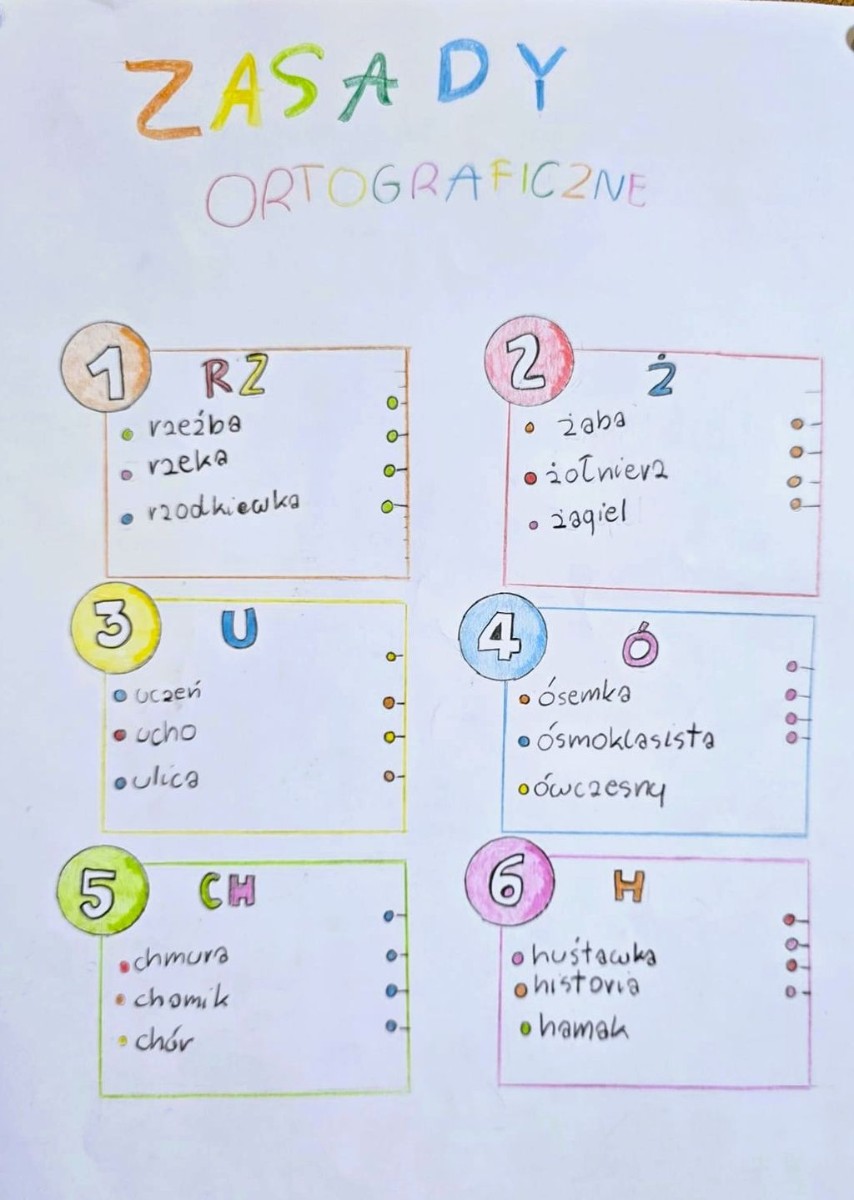 ZASADY
ORTOGRAFICZNE
1 RZ
rzeźba
rzeka
rzodkiewka
2 Ż
żaba
żołnierz
żagiel
3 U
uczeń
ucho
ulica
4 Ó
ósemka
ósmoklasista
ówczesny
5 CH
chmura
chomik
chór
6 H
huśtawka
historia
hamak